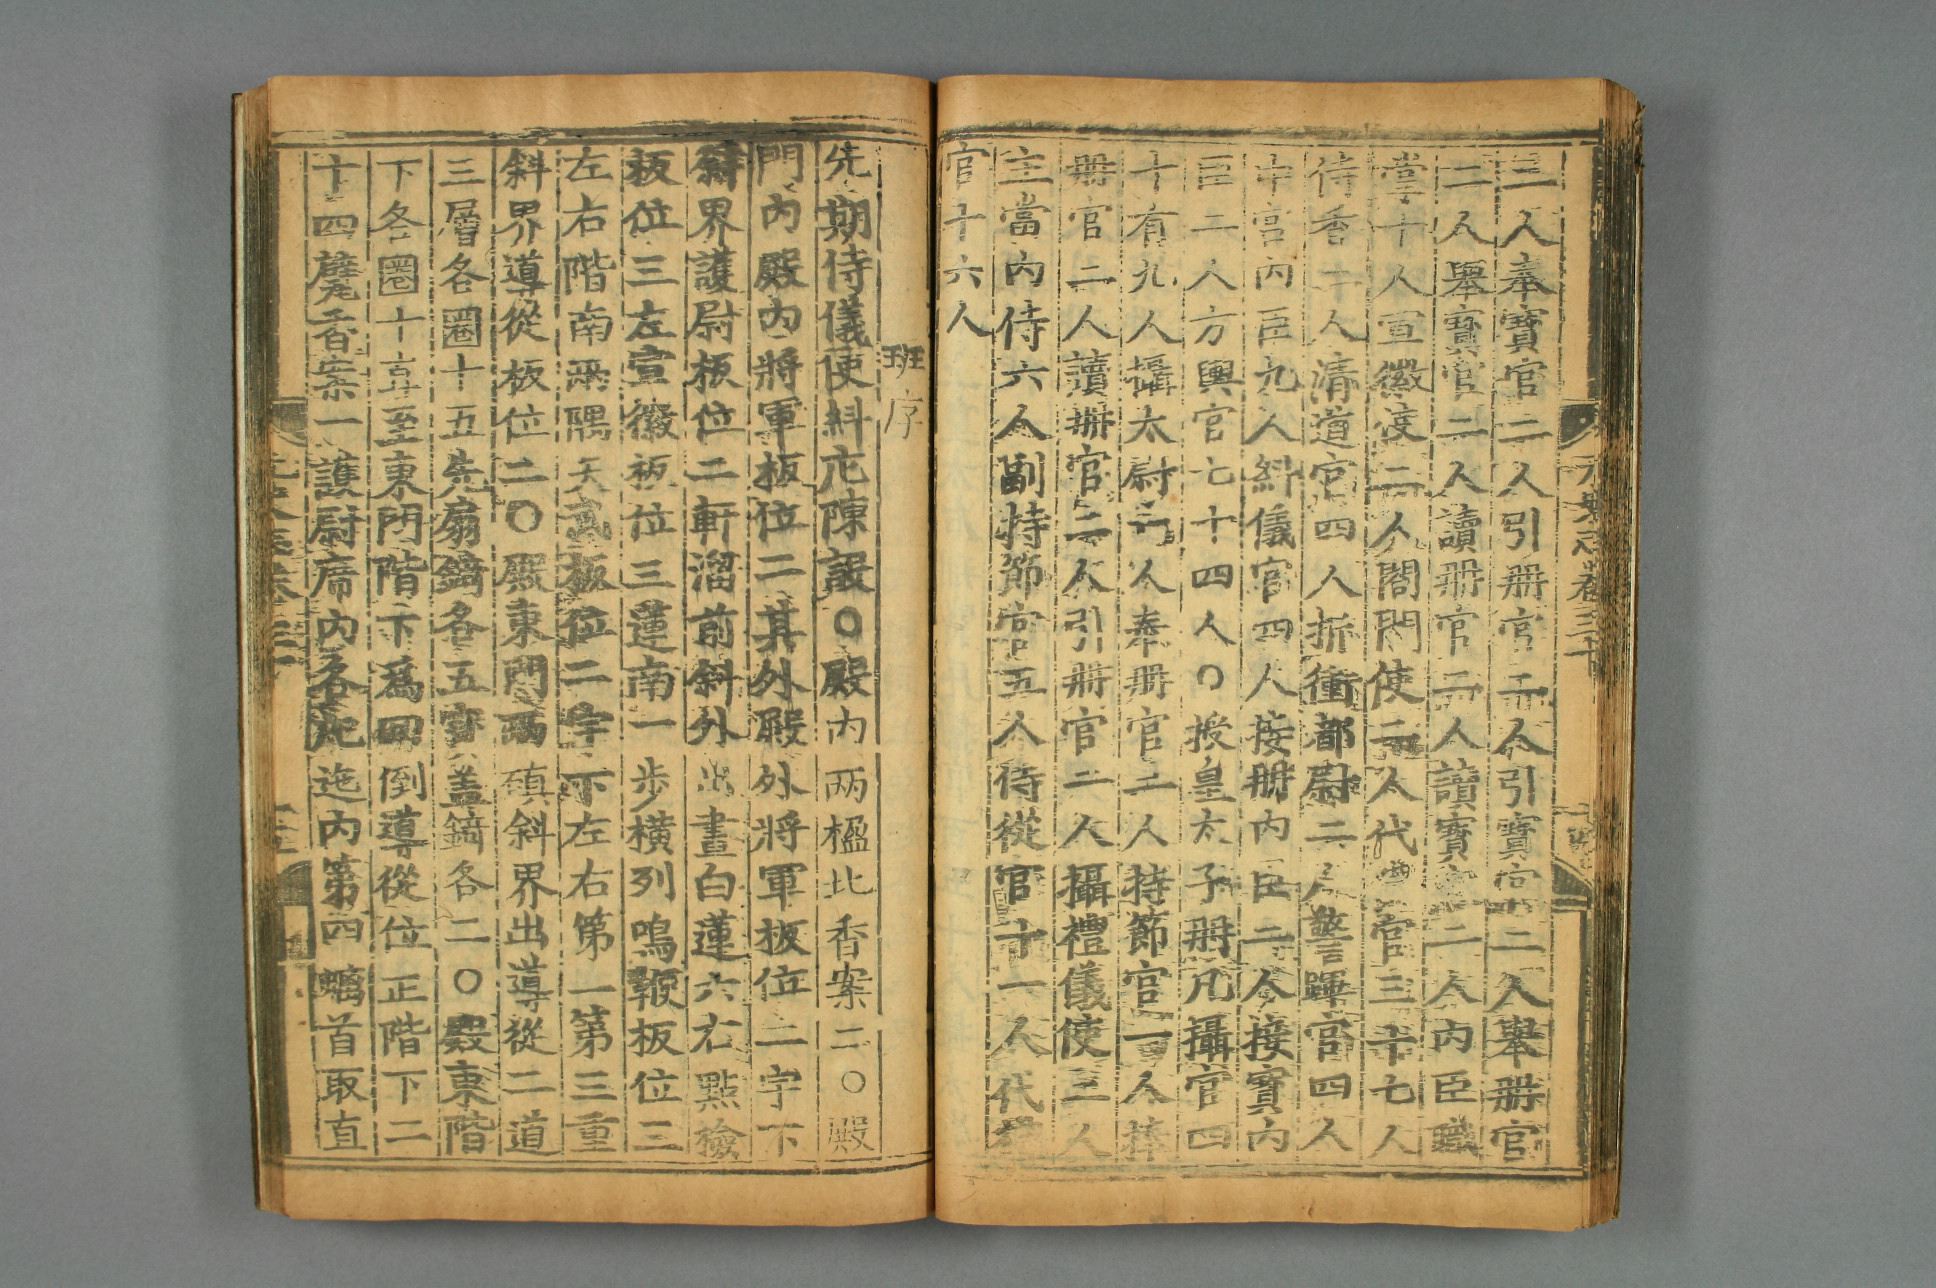 三人奉寶官二人引册官二人引寶官二人舉册官
二人舉寶官二人讀册官二人讀寶官二人內臣職
掌十人宣徽使二人閤門使二人代 官三十七人
侍香二人清道官四人折衝都尉二人警蹕官四人
中宮內臣九人糾儀官四人接册內臣二人接寶內
臣二人方輿官七十四人〇授皇太子册凡攝官四
十有九人攝太尉一人奉册官二人持節官一人捧
册官二人讀册官二人引册官二人攝禮儀使三人
主當內侍六人副持節官五人侍從官十一人代
官十六人
班序
先期侍儀使糾庀陳設〇殿內两楹北香案二〇殿
門內殿內將軍板位二其外殿外將軍板位二宇下
斜界護尉板位二軒溜前斜外出畫白蓮六右點檢
板位三左宣徽板位三蓮南一步橫列鳴鞭板位三
左右階南兩隅天武板位二宇下左右第一第三重
斜界導從板位二〇殿東門兩磧斜界出導從二道
三層各圈十五先扇錡各五寶盖錡各二〇殿東階
下各圈十 至東門階下爲回倒導從位正階下二
十四麾香案一護尉席內各 迤內第四螭首取直
元史志卷三十